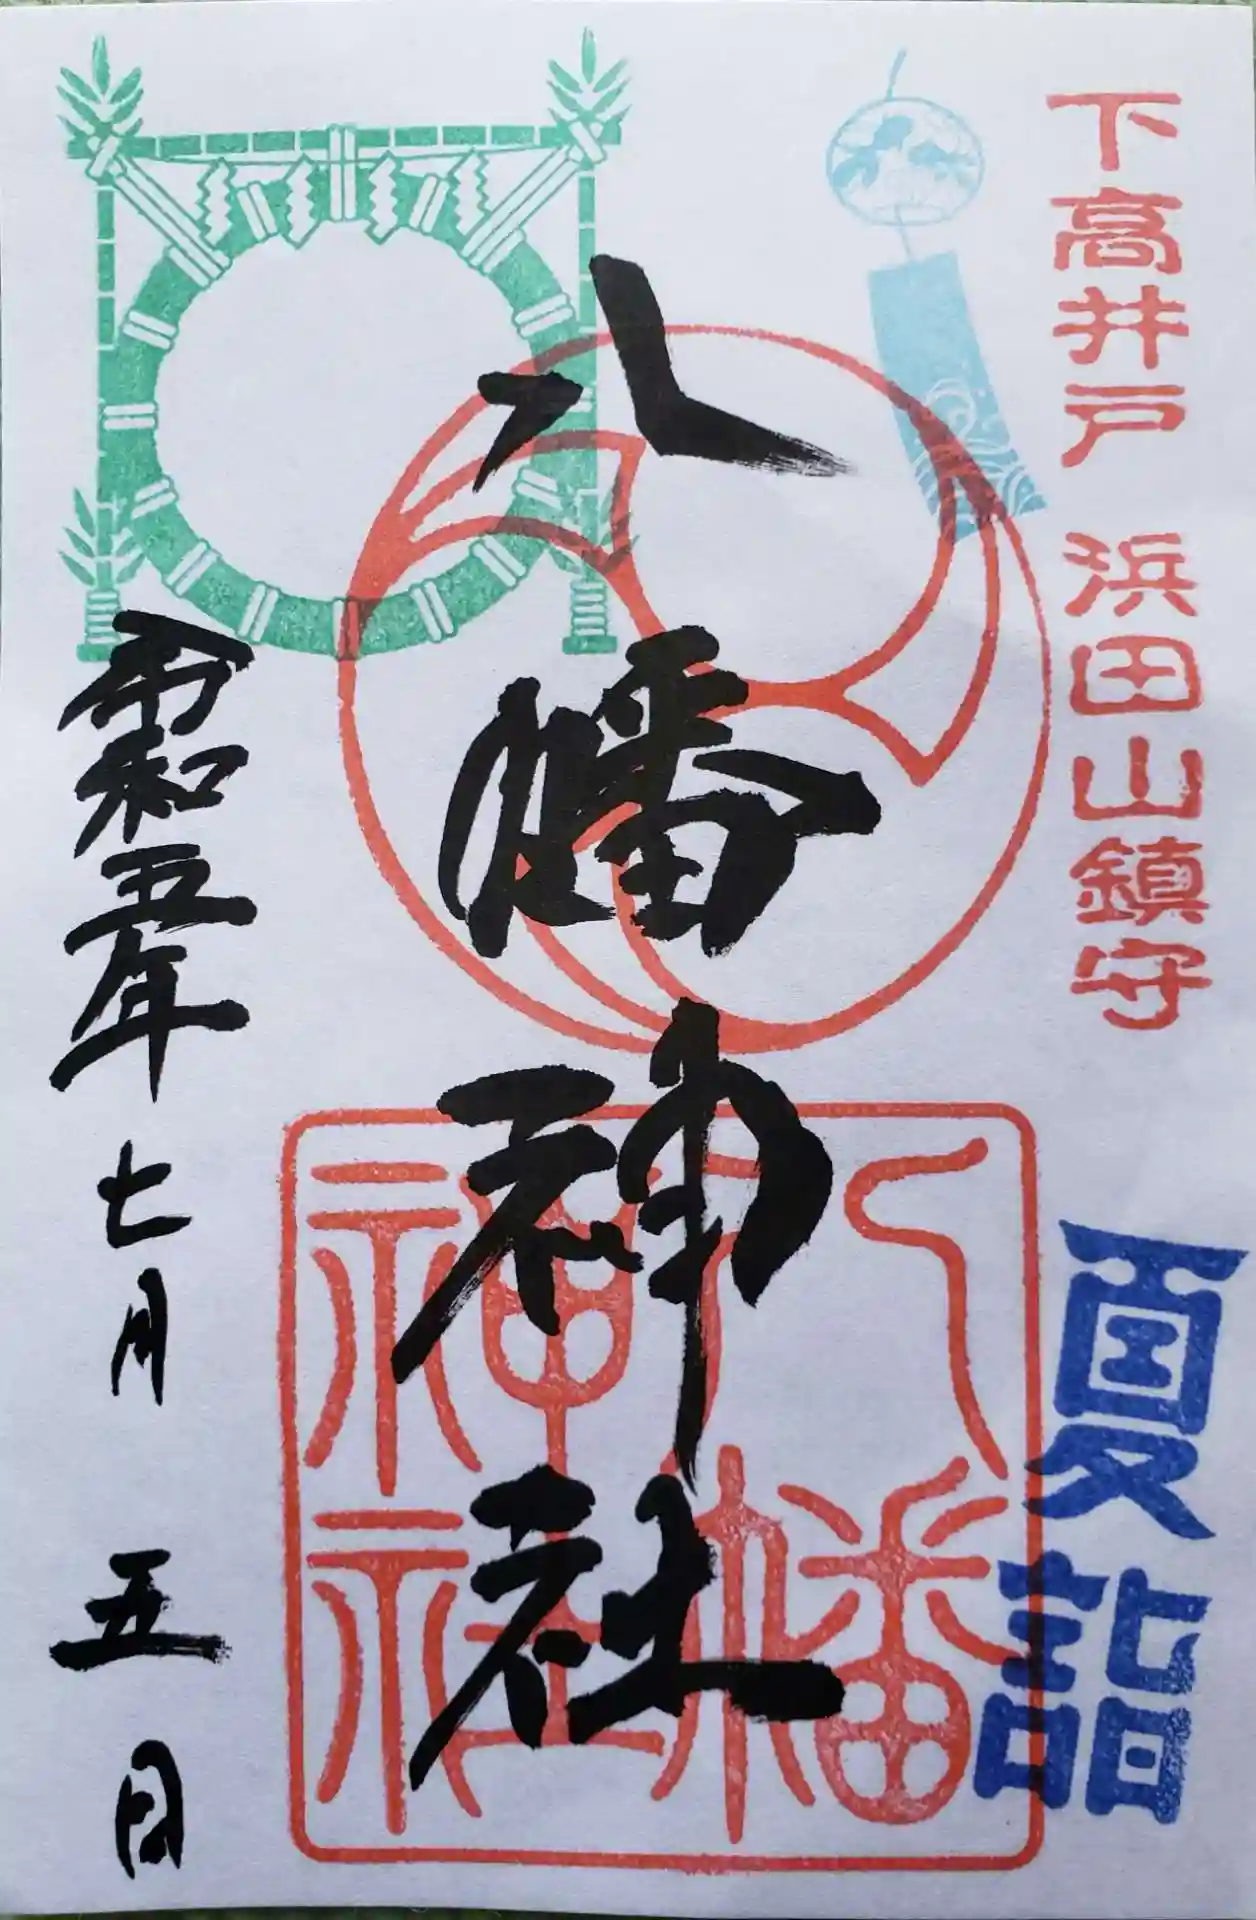 下高井戸 浜田山鎮守
夏詣
八幡神社
八幡
神社
令和五年 七月 五日